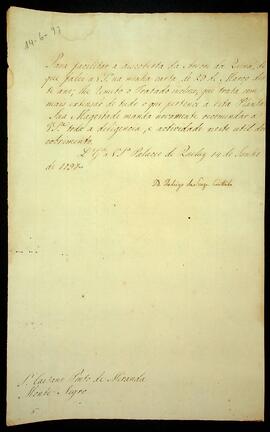 14-6-97
Para facilitar a descoberta da Arvore da Quina, de
que falei a VS.ª na minha carta de 20 de Março des
te ano; lhe remeto o Tratado incluso, que trata com
mais extensão de tudo o que pertence a esta Planta.
Sua Magestade manda novamente recomendar a
VS.ª toda a diligencia, e actividade neste util des
cobrimento.
D.s G.e a VS.ª Palacio de Queluz 14 de Junho
de 1797
D. Rodrigo de Souza Coutinho
S.r Caetano Pinto de Miranda
Monte Negro